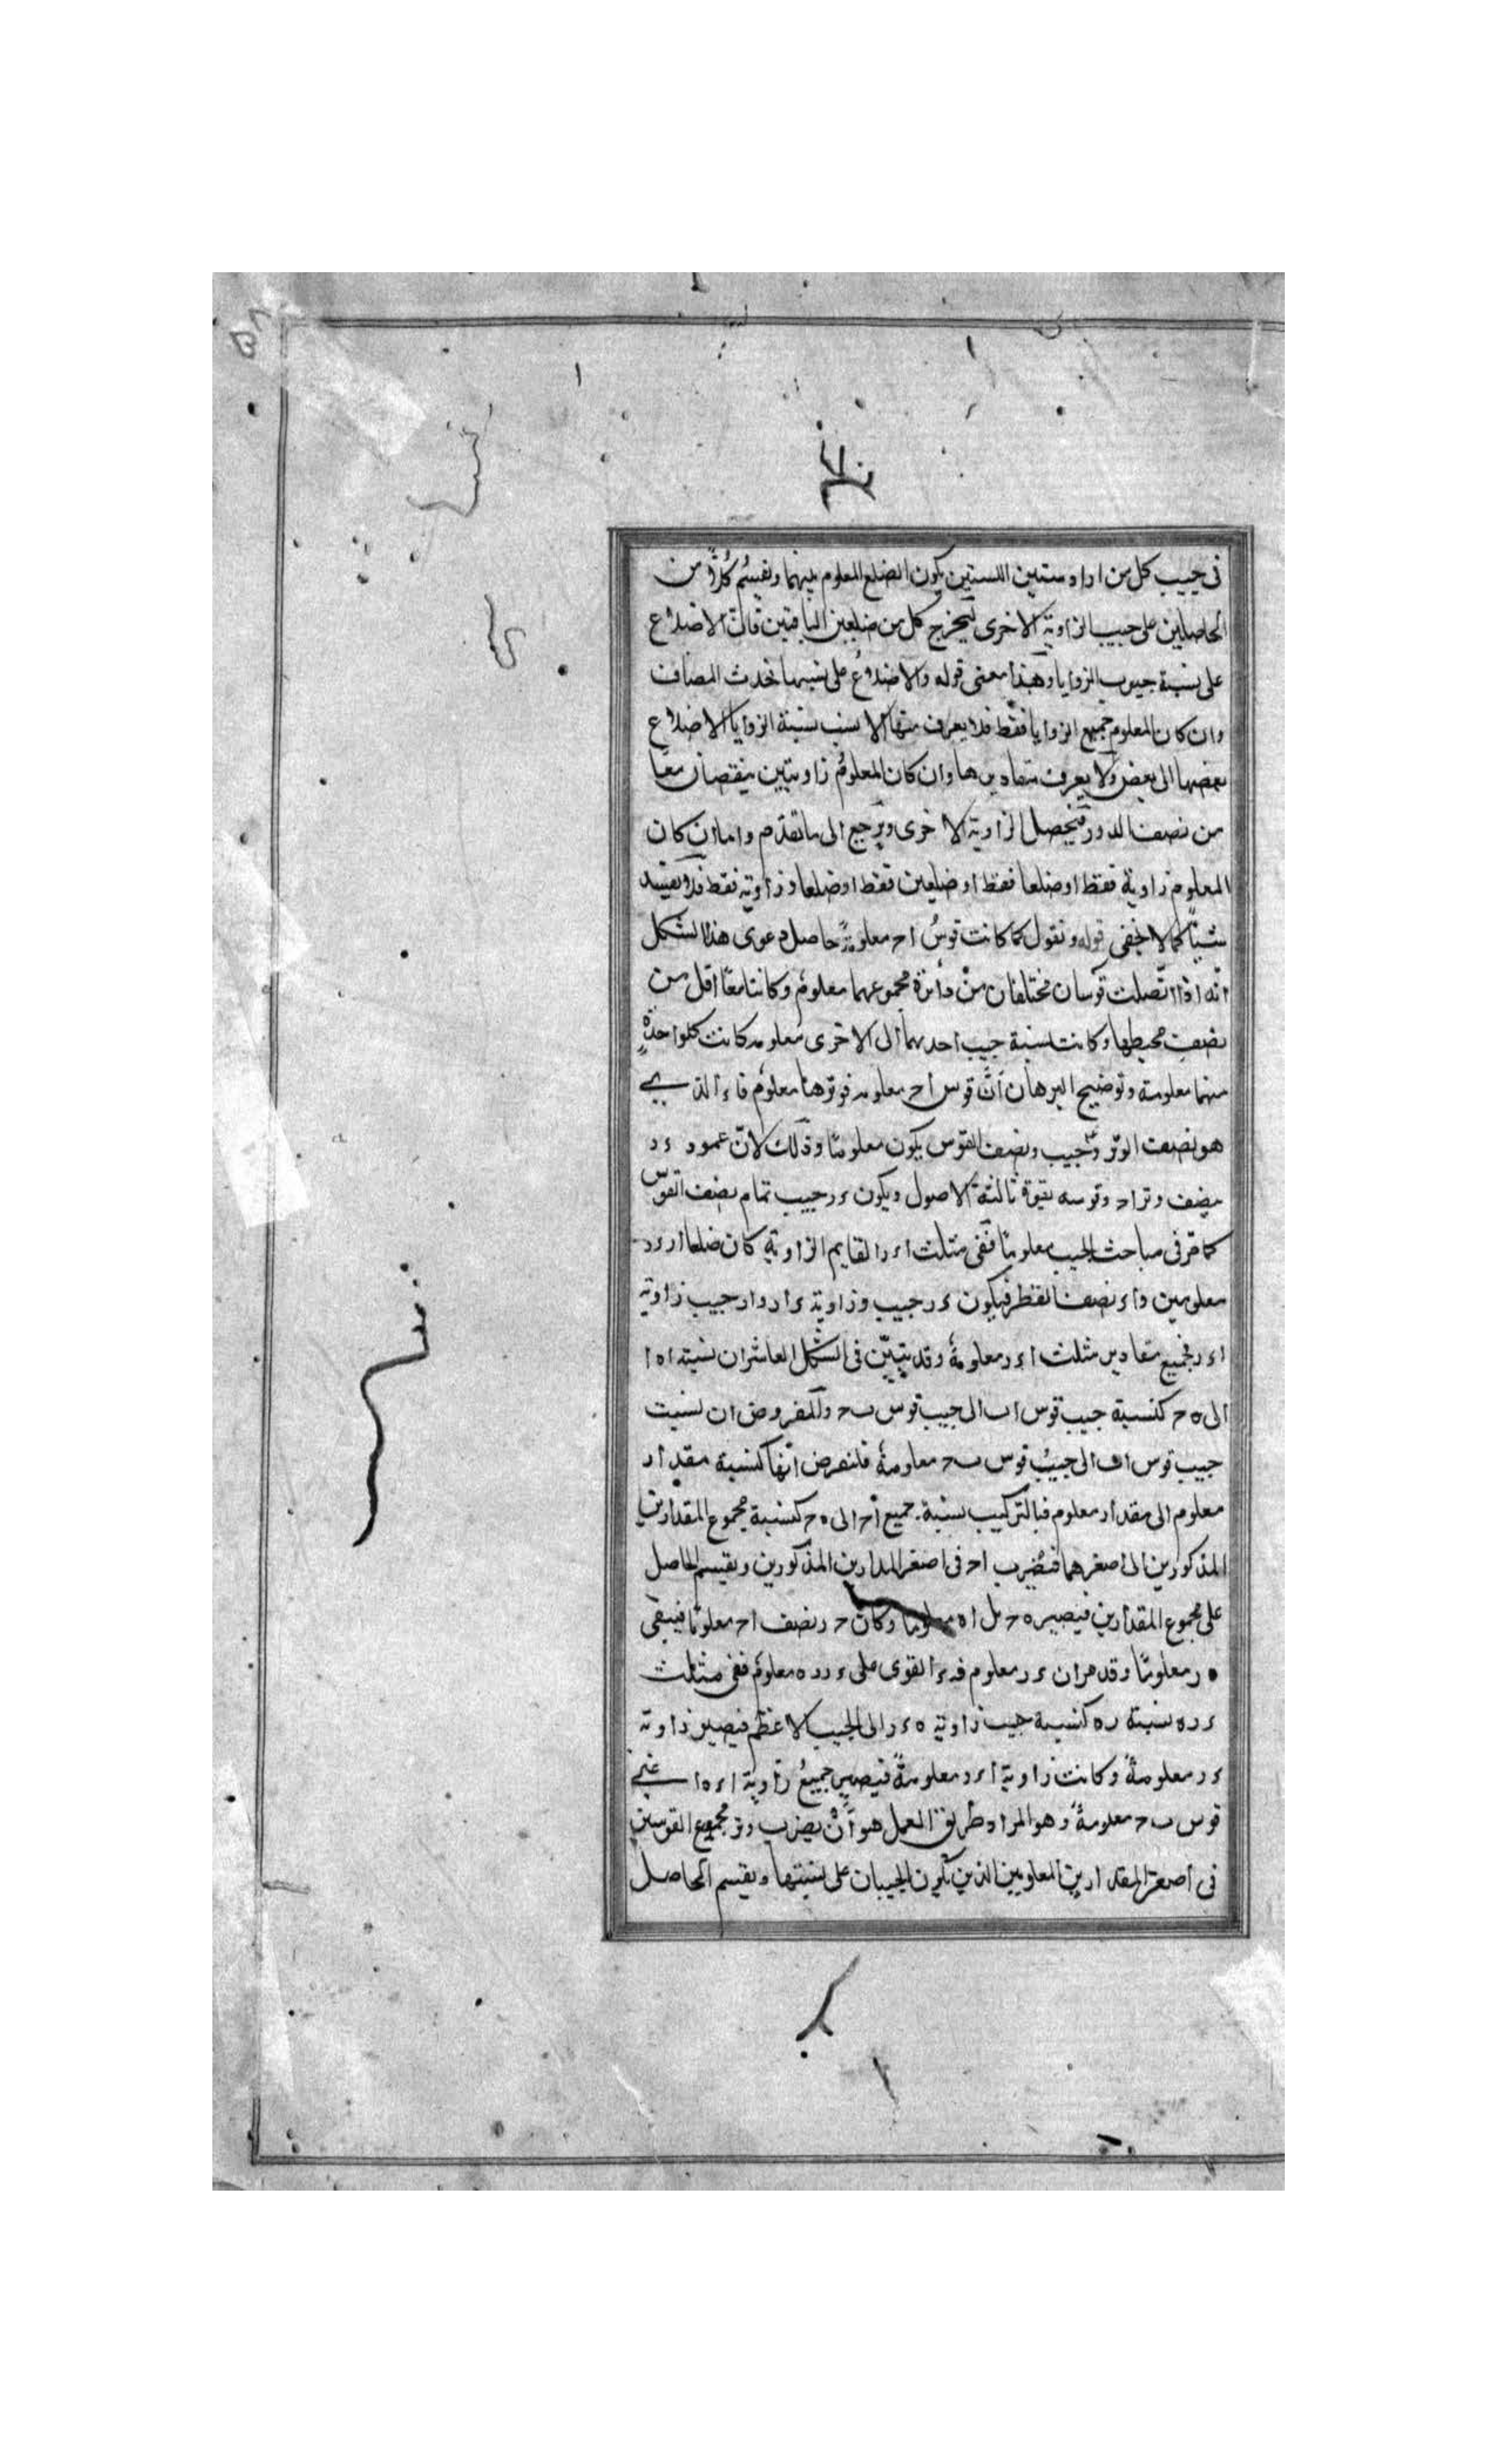 فى جيب كل من الزاويتين اللتين يكون الضلع المعلوم بينهما ونقسم كلاً من
الحاصلين على جيب الزاوية الاخرى ليخرج كل من ضلعين الباقيتين فان الاضلاع
على نسبة جيوب الزوايا وهذا معنى قوله والاضلاع على نسبها تحدث المضاف
وان كان المعلوم جميع الزوايا فقط فلا يعرف منها الا نسب نسبة الزوايا الاضلاع
بعضها الى بعض ولا يعرف مقاديرها وان كان المعلوم زاويتين ينقصان معاً
من نصف الدور فيحصل الزاوية الاخرى ويرجع الى ما تقدم واما ان كان
المعلوم زاوية فقط او ضلعا فقط او ضلعين فقط او ضلعا وزاوية فقط فلا يفيد
شيئاً كما لا يخفى قوله ونقول كما كانت قوس اح معلومةً حاصل دعوى هذا الشكل
انه اذا اتصلت قوسان مختلفان من دائرة مجموعهما معلوم وكانتا معاً اقل من
نصف محيطها وكانت نسبة جيب احديهما الى الاخرى معلومه كانت كل واحدة
منهما معلومة وتوضيح البرهان انّ قوس اح معلومه فوترها معلوم فاء الذى
هو نصف الوتر وجيب ونصف القوس يكون معلوما وذلك لانّ عمود ءر
ينصف وتر اح وقوسه بقوة ثالثة الاصول ويكون ءر جيب تمام نصف القوس
كما مرّ فى مباحث الجيب معلوماً ففى مثلث اءر القايم الزاوية كان ضلعا ار رء
معلومين واء نصف القطر فيكون ءر جيب وزاوية ءار وار جيب زاوية
اءر فجميع مقادير مثلث اءر معلومةً وقد يتبيّن فى الشكل العاشر ان نسبته اه ا
الى ه ح كنسبة جيب قوس اب الى جيب قوس ب ح والمفروض ان نسبت
جيب قوس اب الى جيب قوس ب ح معلومةٌ فلنفرض انها كنسبة مقدار
معلوم الى مقدار معلوم فبالتركيب نسبة جميع اح الى ه ح كنسبة مجموع المقدارين
المذكورين الى اصغرهما فنضرب اح فى اصغر المدارين المذكورين ونقسم الحاصل
على مجموع المقدارين فيصير ه ح بل اه معلوما وكان ح ر نصف اح معلوماً فيبقى
ه ر معلوماً وقد مر ان ءر معلوم فه ء القوى على ءر ره معلوم ففى مثلث
ءره نسبة ره كنسبة جيب زاوية ه ءر الى الجيب الاعظم فيصير زاوية
ءر معلومةً وكانت زاوية اءر معلومةً فيصير جميع زاوية اءه اعنى
قوس ب ح معلومةً وهو المراد طريق العمل هو أن يضرب وتر مجموع القوسين
فى اصغر المقدارين المعلومين الذين يكون الجيبان على نسبتها ويقسم الحاصل